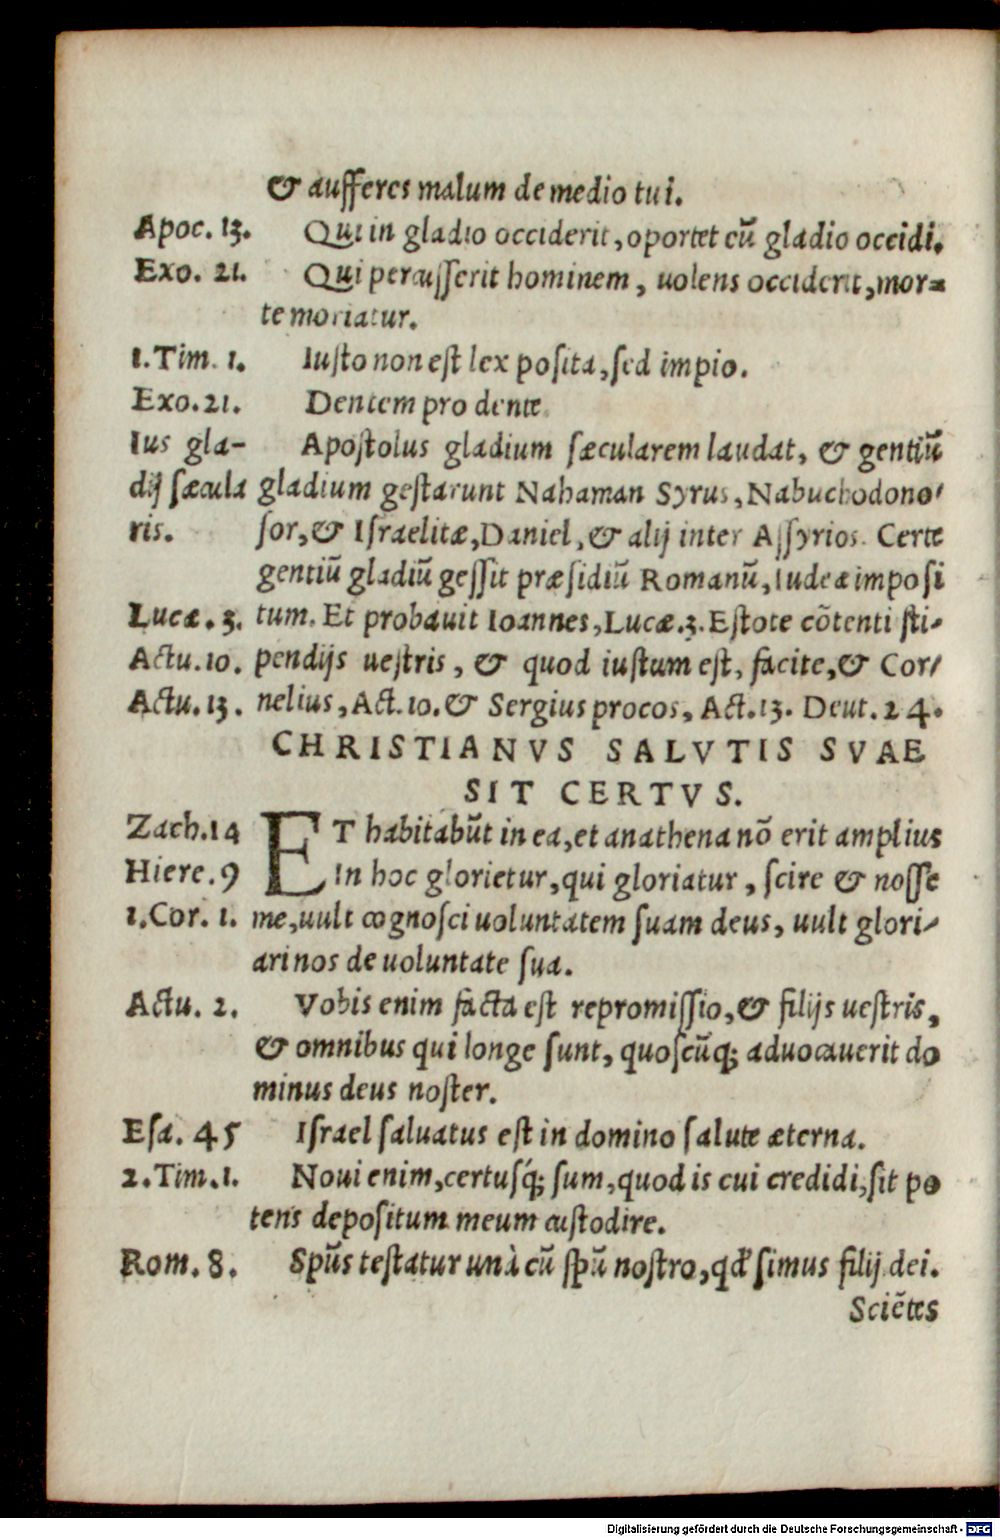 & aufferes malum de medio tui.
Apoc. 13. Qui in gladio occiderit, oportet cũ gladio occidi.
Exo. 21. Qui percusserit hominem, uolens occidere, mor=
te moriatur.
1. Tim. 1. Iusto non est lex posita, sed impio.
Exo. 21. Dentem pro dente.
Ius gla- Apostolus gladium sæcularem laudat, & gentiũ
dij sæcula gladium gestarunt Nahaman Syrus, Nabuchodono-
ris. sor, & Israelitæ, Daniel, & alij inter Assyrios. Certe
gentiũ gladiũ gessit præsidiũ Romanũ, Iudeæ imposi
Lucæ. 3. tum. Et probauit Ioannes, Lucæ. 3. Estote cõtenti sti-
Actu. 10. pendijs uestris, & quod iustum est, facite, & Cor-
Actu. 13. nelius, Act. 10. & Sergius procos, Act. 13. Deut. 24.
CHRISTIANVS SALVTIS SVAE
SIT CERTVS.
Zach. 14 ET habitabũt in ea, et anathena nõ erit amplius
Hiere. 9 In hoc glorietur, qui gloriatur, scire & nosse
1. Cor. 1. me, uult cognosci uoluntatem suam deus, uult glori-
ari nos de uoluntate sua.
Actu. 2. Vobis enim facta est repromissio, & filijs uestris,
& omnibus qui longe sunt, quoscũq; aduocauerit do
minus deus noster.
Esa. 45 Israel saluatus est in domino salute æterna.
2. Tim. 1. Noui enim, certusq́; sum, quod is cui credidi, sit po
tens depositum meum custodire.
Rom. 8. Spũs testatur unà cũ spũ nostro, qd' simus filij dei.
Sciẽtes
Digitalisierung gefördert durch die Deutsche Forschungsgemeinschaft - DFG